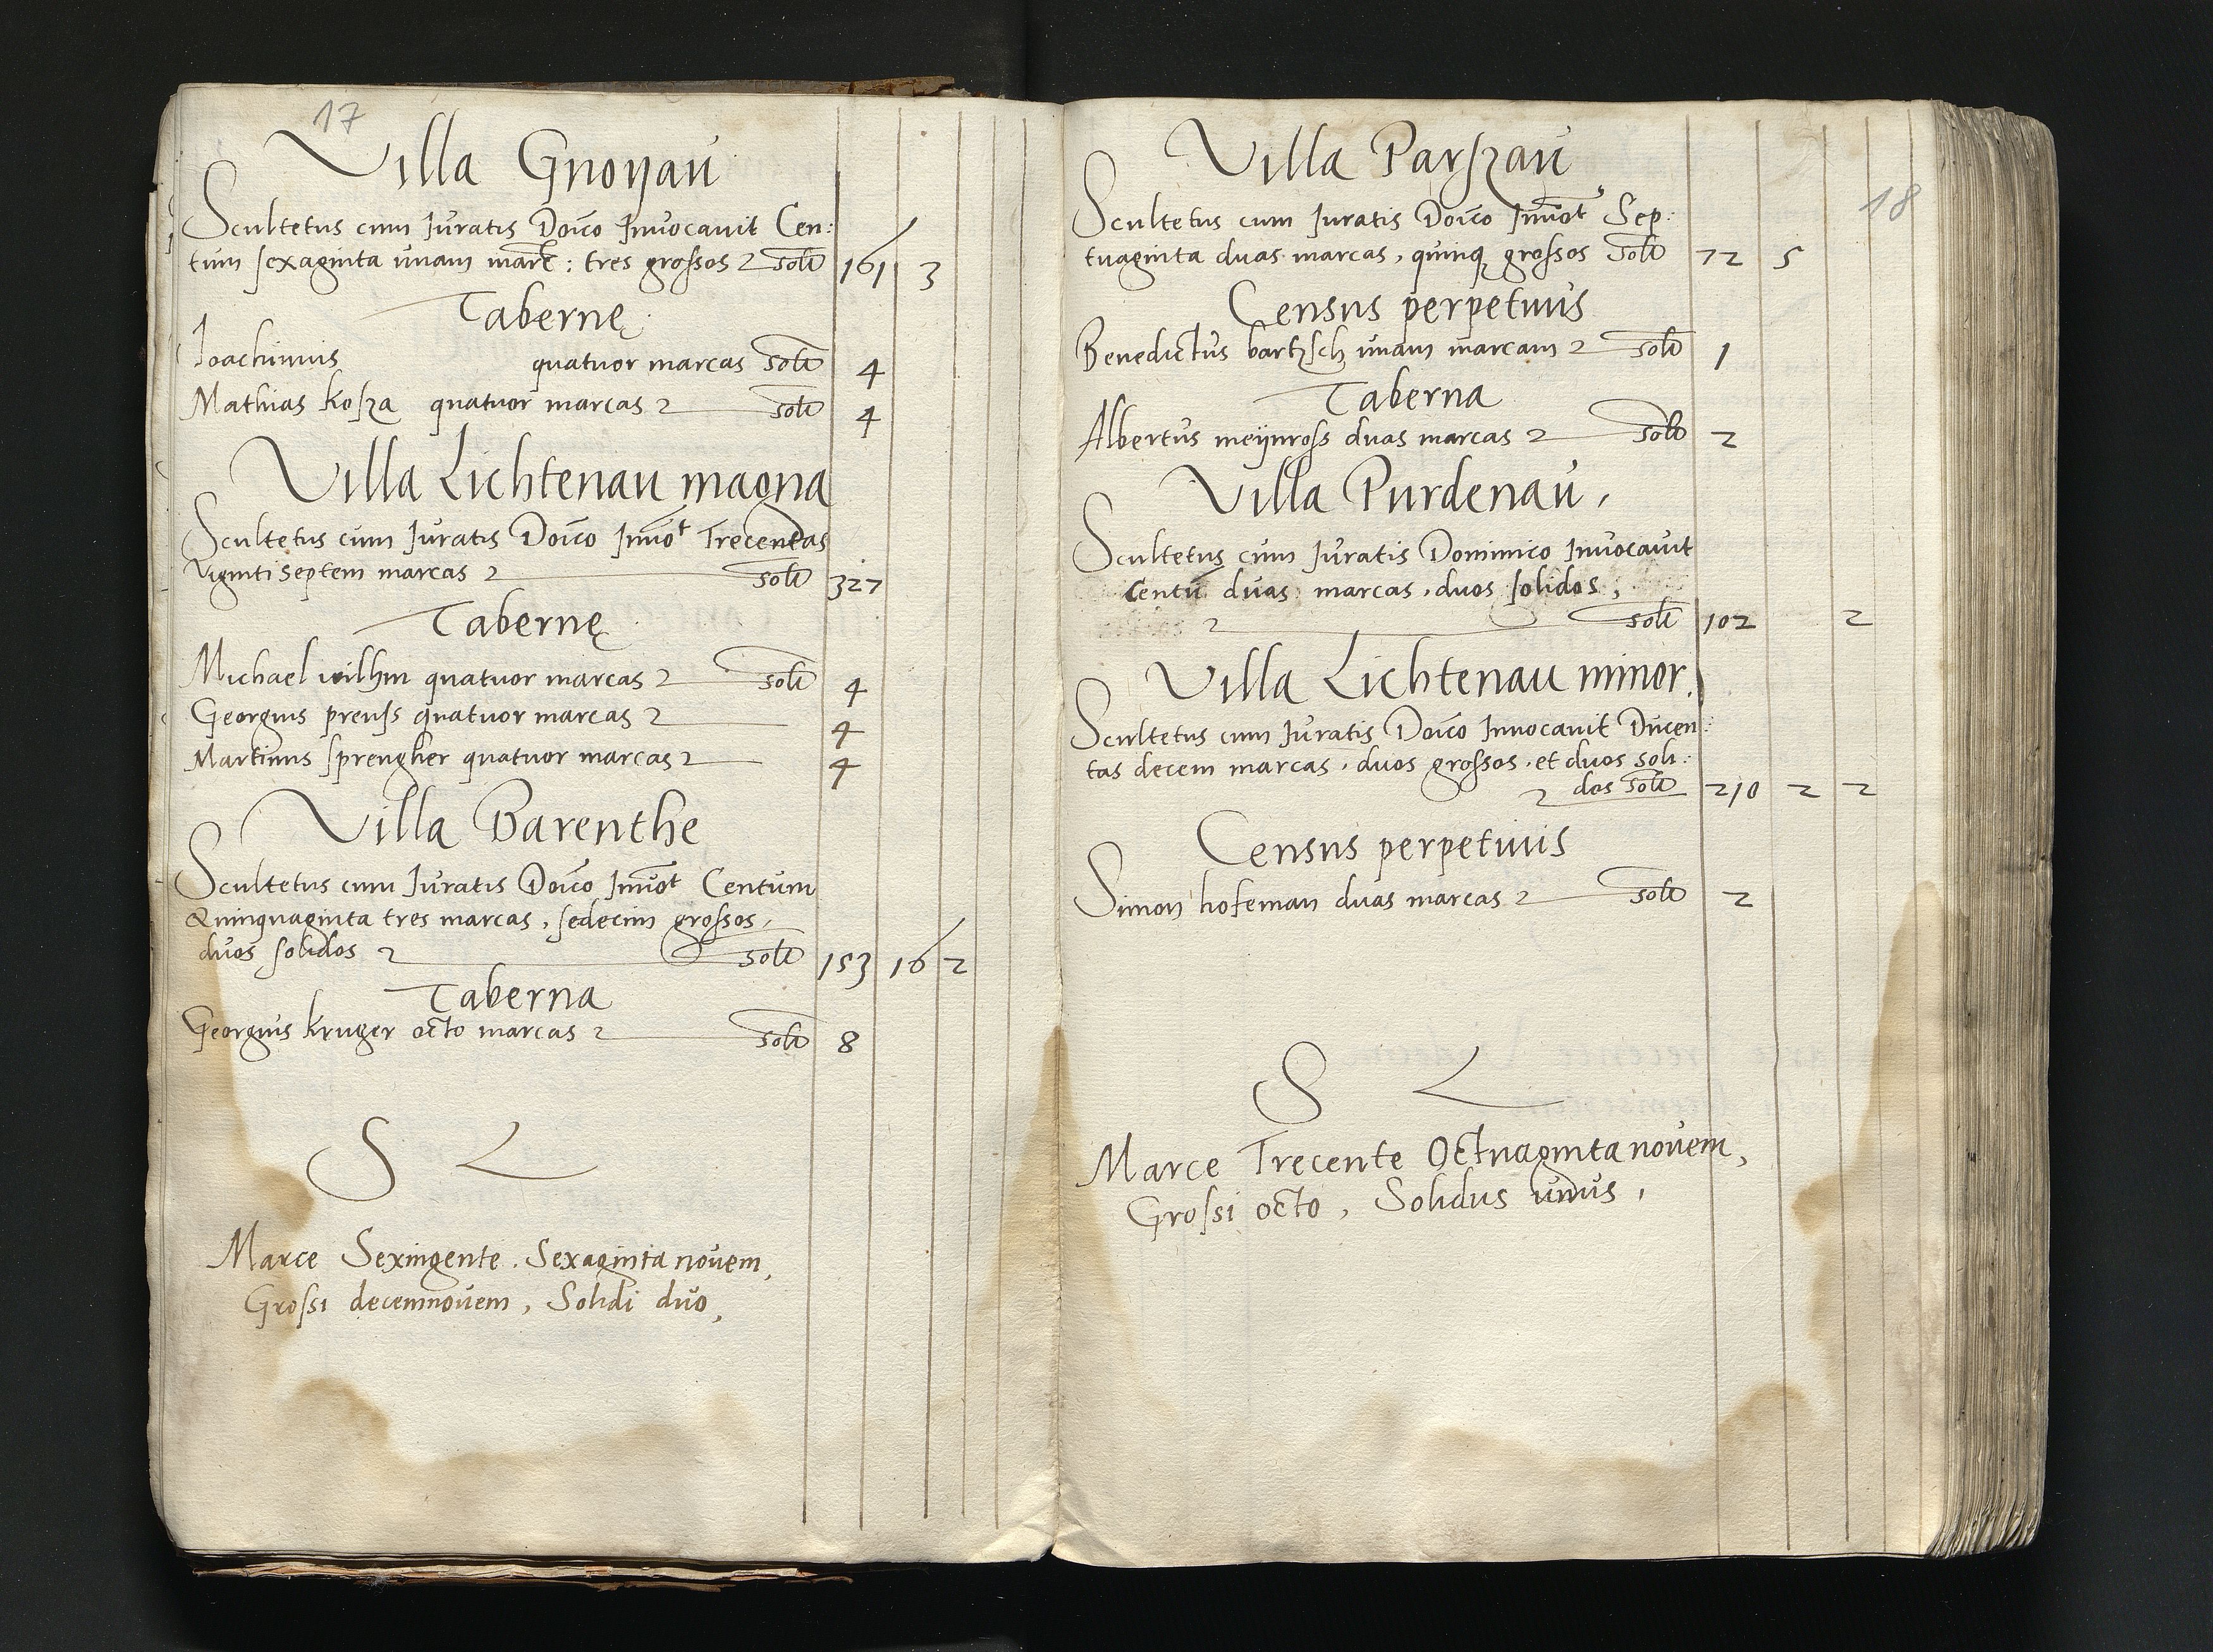 17
Villa Gnoÿau
Scultetus cum Iuratis Doīco Inuocauit Cen:
tum sexaginta unam marc: tres grossos solū 161 3
Tabernę
Ioachimus quatuor marcas solū 4
Mathias kosza quatuor marcas solū 4
Villa Lichtenau magna
Scultetus cum Iuratis Doīco Inuot Trecentas
viginti septem marcas solū 327
Tabernę
Michael wilhm quatuor marcas solū 4
Georgius preuss quatuor marcas 4
Martinus sprengher quatuor marcas 4
Villa Barenthe
Scultetus cum Iuratis Doīco Inuot Centum
Quinquaginta tres marcas, sedecim grossos,
duos solidos solū 153 16 2
Taberna
Georgius kruger octo marcas solū 8
S L
Marce Sexingente. Sexaginta novem,
Grossi decemnovem, Solidi duo,
18
Villa Parszau
Scultetus cum Iuratis Doīco Inuot Sep:
tuaginta duas marcas, quinq grossos solū 72 5
Census perpetuus
Benedictus bartzsch unam marcam solū 1
Taberna
Albertus meÿnross duas marcas solū 2
Villa Purdenau,
Scultetus cum Iuratis Dominico Inuocauit
Centū duas marcas, duos solidos,
solū 102 2
Villa Lichtenau minor.
Scultetus cum Iuratis Doīco Inuocauit Ducen:
tas decem marcas, duos grossos, et duos soli:
dos solū 210 2 2
Census perpetuus
Simon hofeman duas marcas solū 2
S L
Marce Trecente Octuaginta novem,
Grossi octo, Solidus unus,